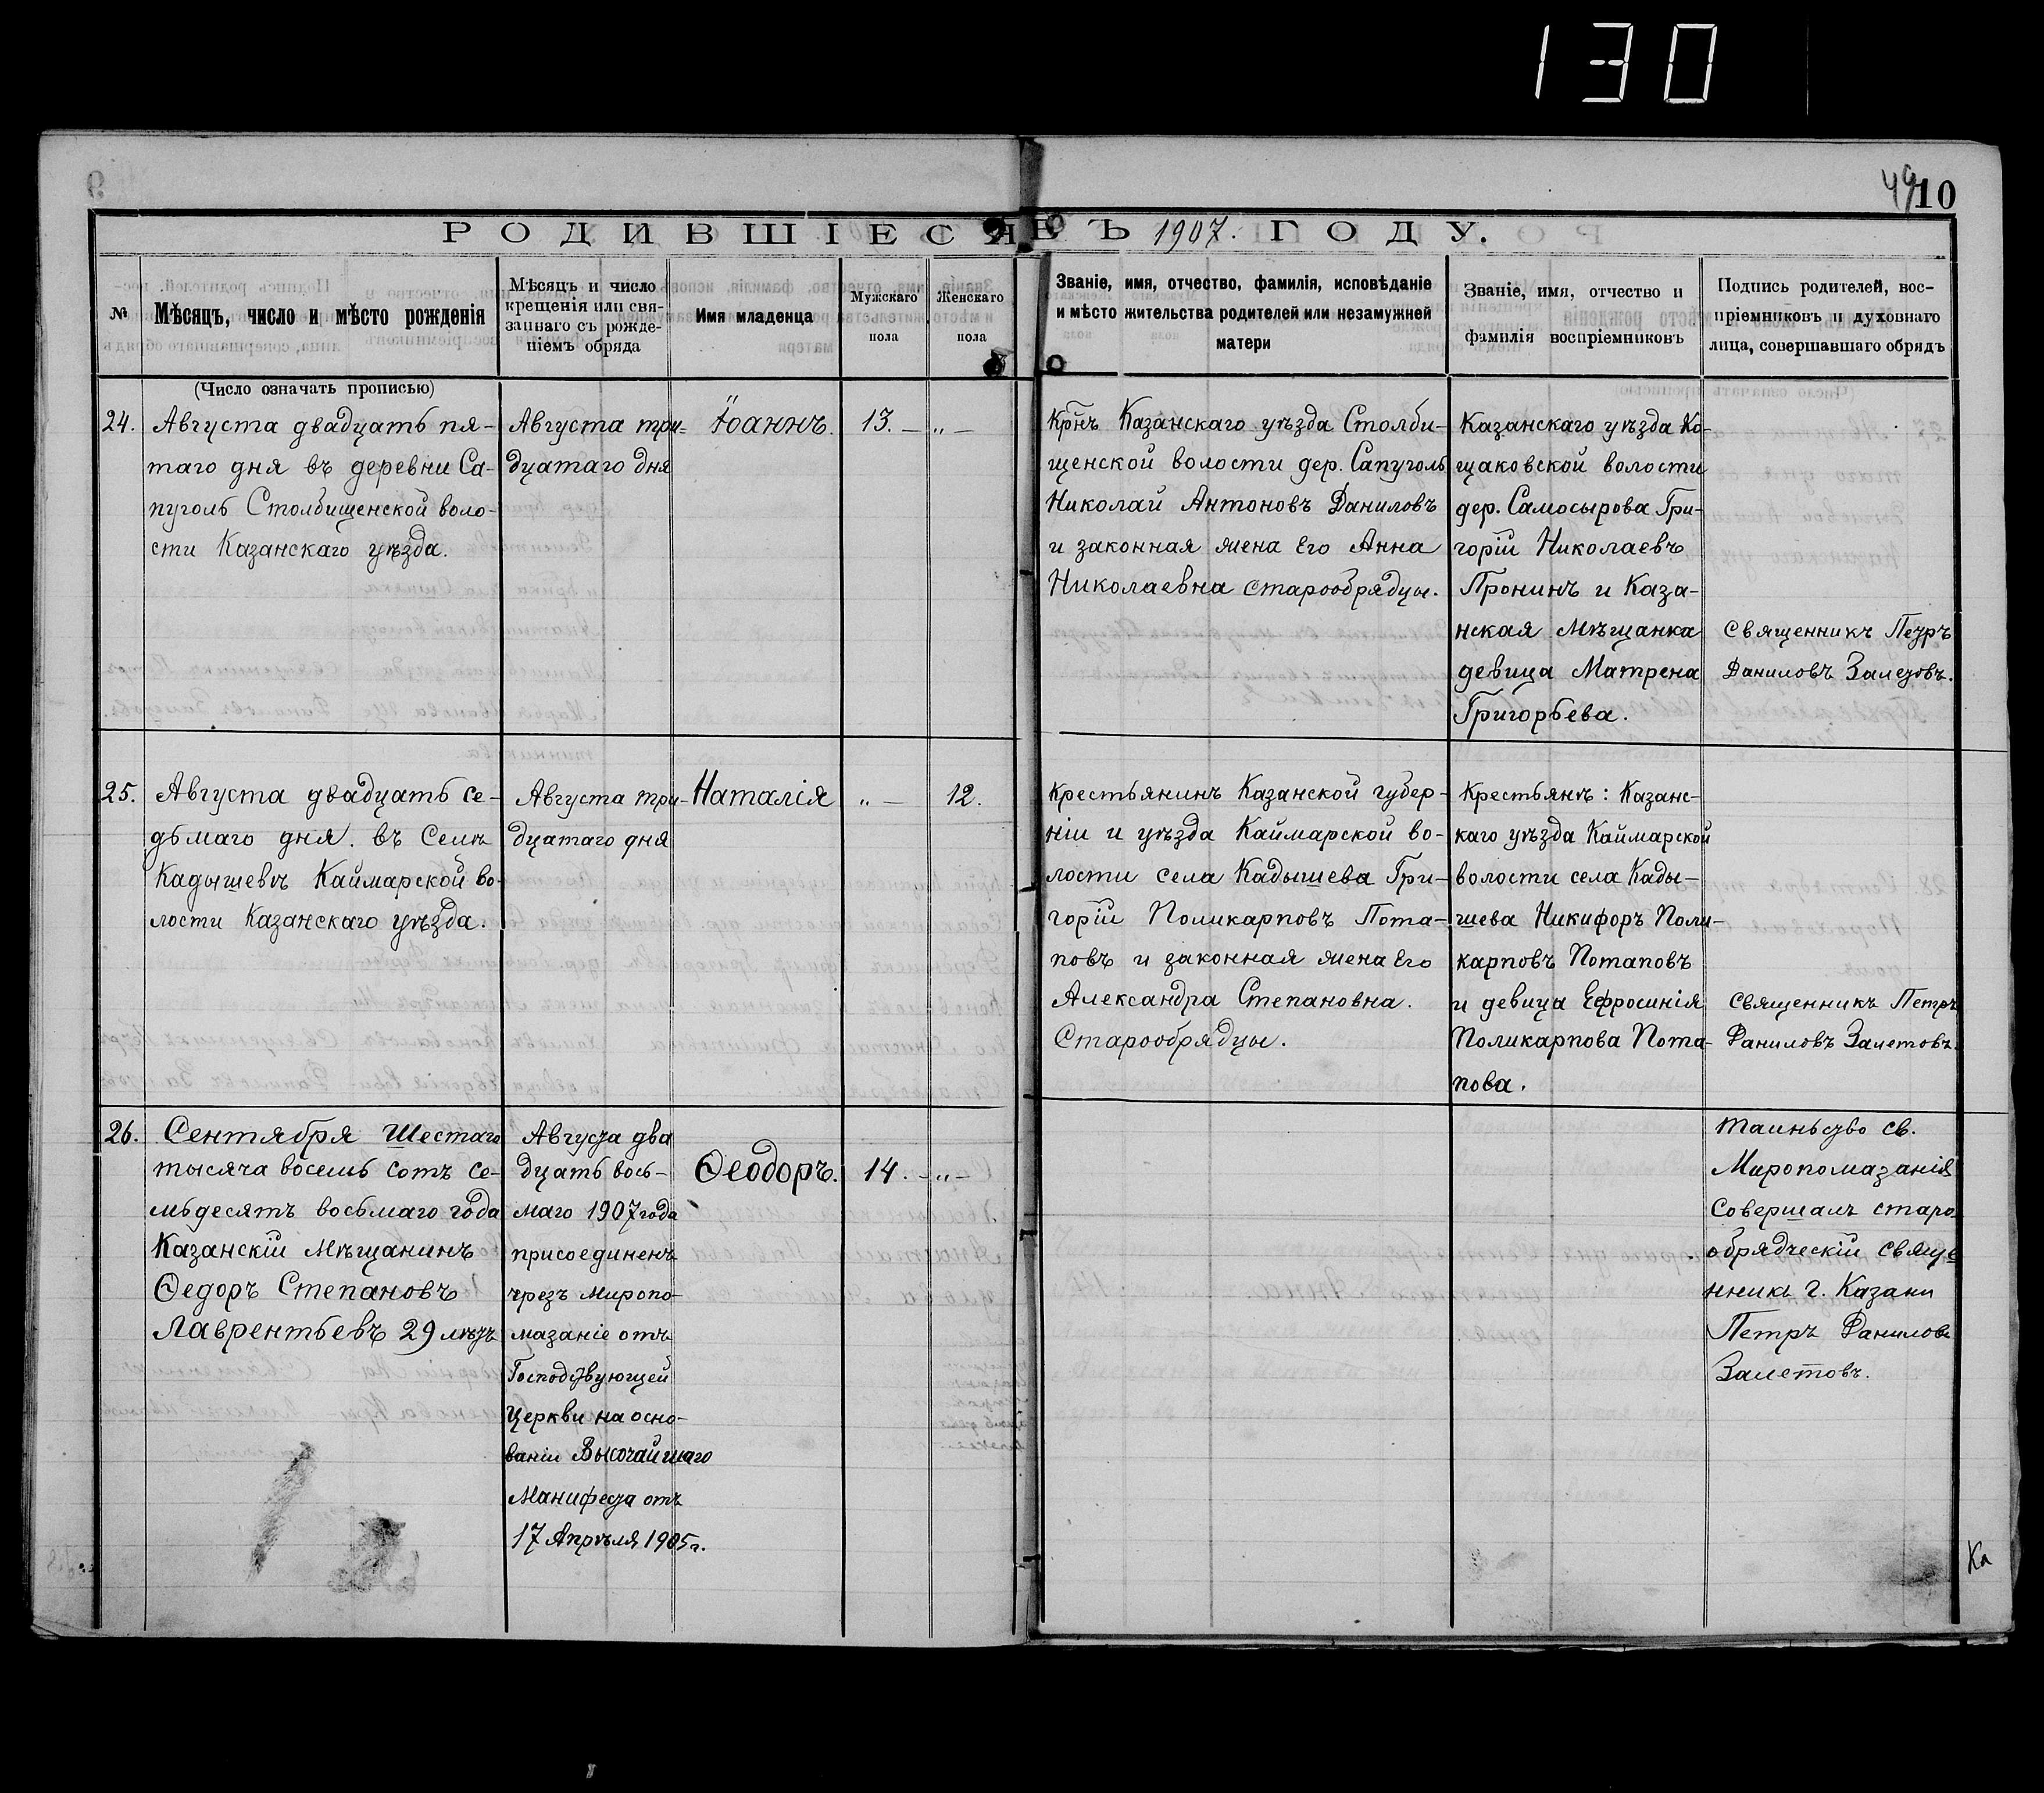 130
49
10
РОДИВШІЕСЯ ВЪ 1907. ГОДУ.
№
Мѣсяцъ, число и мѣсто рожденія
Мѣсяцъ и число
крещенія или свя-
заннаго съ рожде-
ніемъ обряда
Имя младенца
Мужскаго
пола
Женскаго
пола
Званіе, имя, отчество, фамилія, исповѣданіе
и мѣсто жительства родителей или незамужней
матери
Званіе, имя, отчество и
фамилія воспріемниковъ
Подпись родителей, вос-
пріемниковъ и духовнаго
лица, совершавшаго обрядъ
(Число означать прописью)
24.
Августа двадцать пя-
таго дня въ деревни Са-
пуголь Столбищенской воло-
сти Казанскаго уѣзда.
Августа три-
дцатаго дня
Іоаннъ.
13. — „ —
Крнъ Казанскаго уѣзда Столби-
щенской волости дер. Сапуголь
Николай Антоновъ Даниловъ
и законная жена Его Анна
Николаевна старообрядцы.
Казанскаго уѣзда Ко-
щаковской волости
дер. Самосырова Гри-
горій Николаевъ
Пронинъ и Каза-
нская Мѣщанка
девица Матрена
Григорьева.
Священникъ Петръ
Даниловъ Залетовъ.
25.
Августа двадцать се-
дьмаго дня. въ Селѣ
Кадышевѣ Каймарской во-
лости Казанскаго уѣзда.
Августа три-
дцатаго дня
Наталія
„ — 12.
Крестьянинъ Казанской губер-
ніи и уѣзда Каймарской во-
лости села Кадышева Гри-
горій Поликарповъ Пота-
повъ и законная жена Его
Александра Степановна.
Старообрядцы.
Крестьянѣ: Казанс-
каго уѣзда Каймарской
волости села Кады-
шева Никифоръ Поли-
карповъ Потаповъ
и девица Ефросинія
Поликарпова Пота-
пова.
Священникъ Петръ
Даниловъ Залетовъ.
26.
Сентября Шестаго
тысяча восемь сотъ се-
мьдесятъ восьмаго года
Казанскій Мѣщанинъ
Ѳедоръ Степановъ
Лаврентьевъ 29 лѣтъ
Августа два
дцать вось-
маго 1907 года
присоединенъ
чрезъ миропо-
мазаніе отъ
Господствующей
Церкви на осно-
ваніи Высочайшаго
Манифеста отъ
17 Апрѣля 1905 г.
Ѳеодоръ.
14. — „ —
Таиньство св.
Миропомазанія
Совершалъ старо-
обрядческій свяще
нникъ г. Казани
Петръ Даниловъ
Залетовъ.
Ка